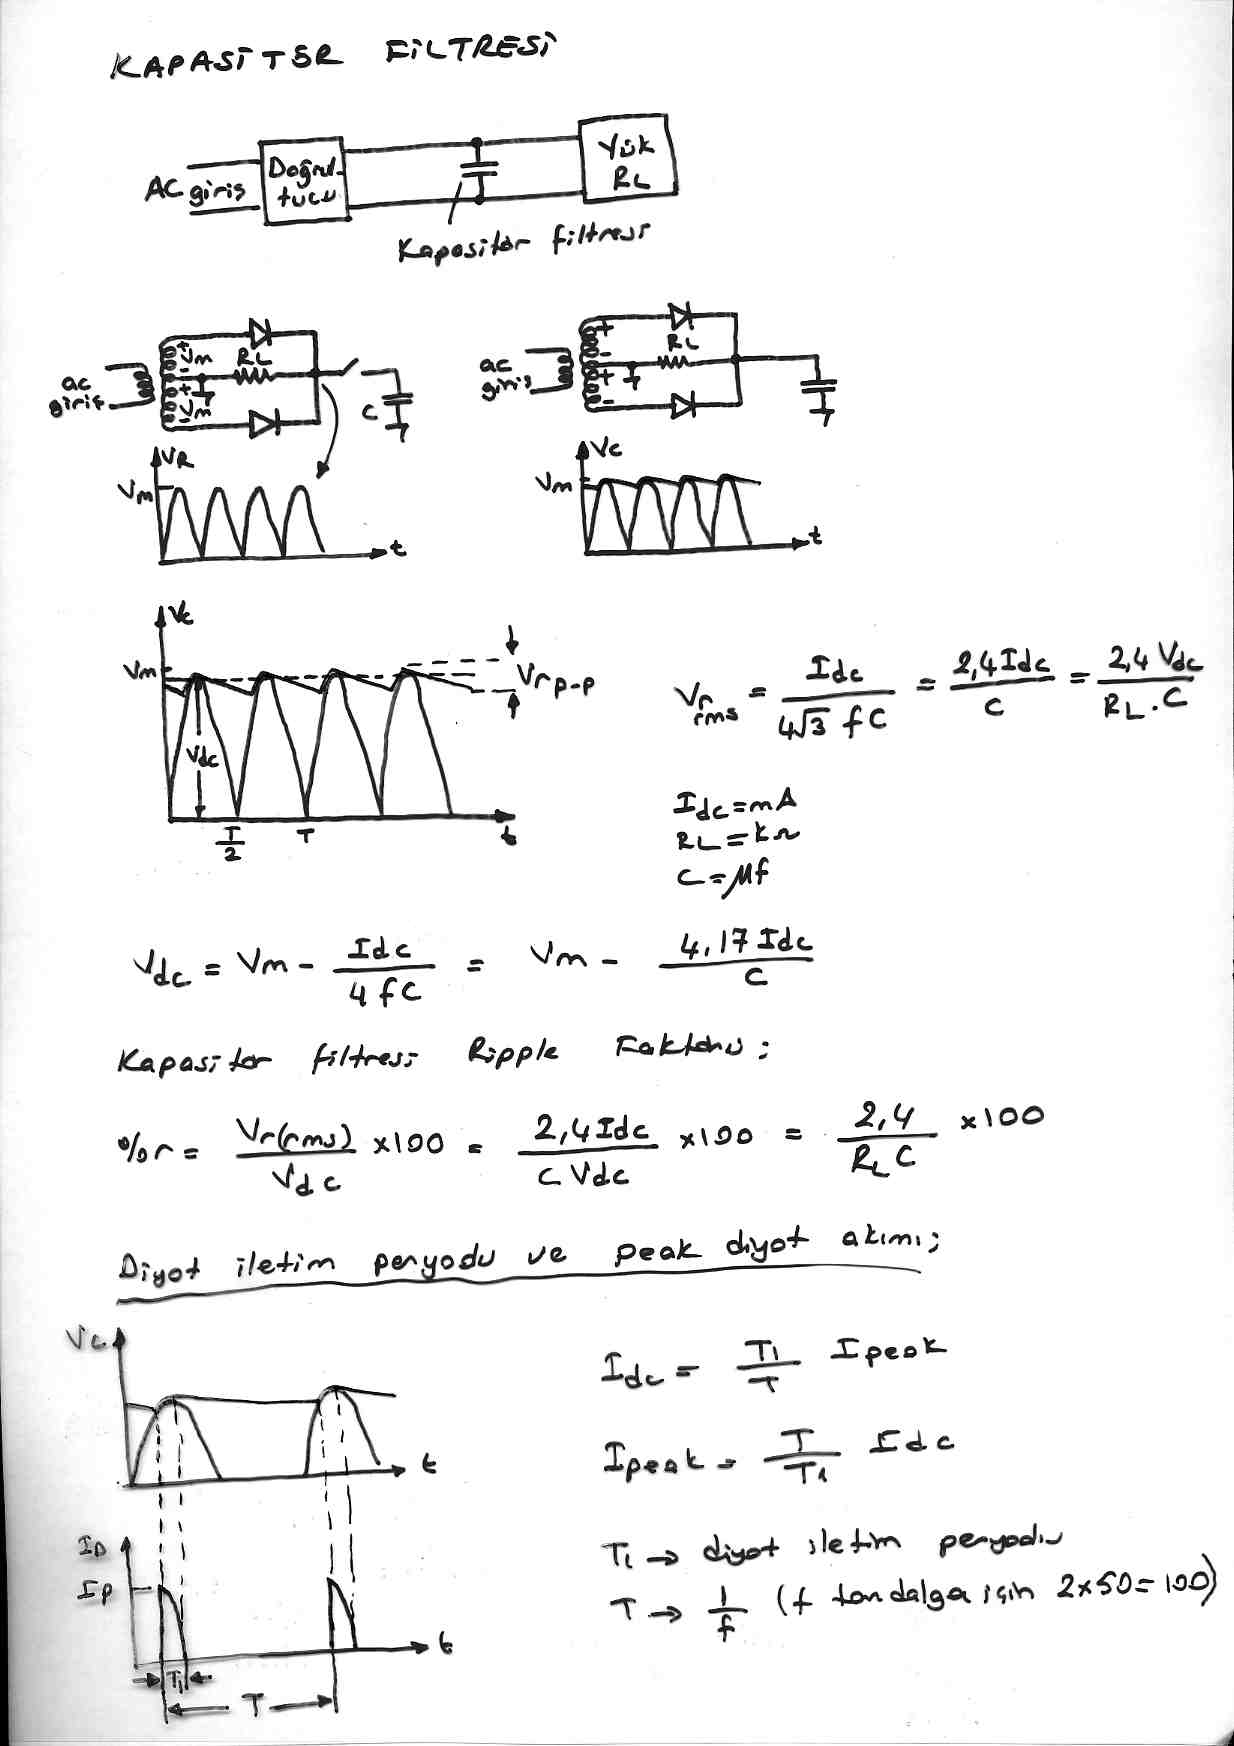 KAPASİTÖR FİLTRESİ
AC giris
Doğrul-
tucu
Yük
RL
Kapasitör filtresi
ac
giriş
Vm
Vm
RL
C
ac
giriş
RL
VR
Vm
t
Vc
Vm
t
Vc
Vm
Vr p-p
Vdc
T/2
T
t
Vr rms = Idc / 4√3 fC = 2,4 Idc / C = 2,4 Vdc / RL . C
Idc = mA
RL = kΩ
C = μf
Vdc = Vm - Idc / 4 fC = Vm - 4,17 Idc / C
Kapasitör filtresi Ripple Faktörü ;
%r = Vr(rms) / Vdc x100 = 2,4 Idc / C Vdc x100 = 2,4 / RL C x100
Diyot iletim peryodu ve peak diyot akımı ;
Vc
t
ID
IP
t
T1
T
Idc = T1 / T Ipeak
Ipeak = T / T1 Idc
T1 → diyot iletim peryodu
T → 1 / f (f tam dalga için 2x50=100)